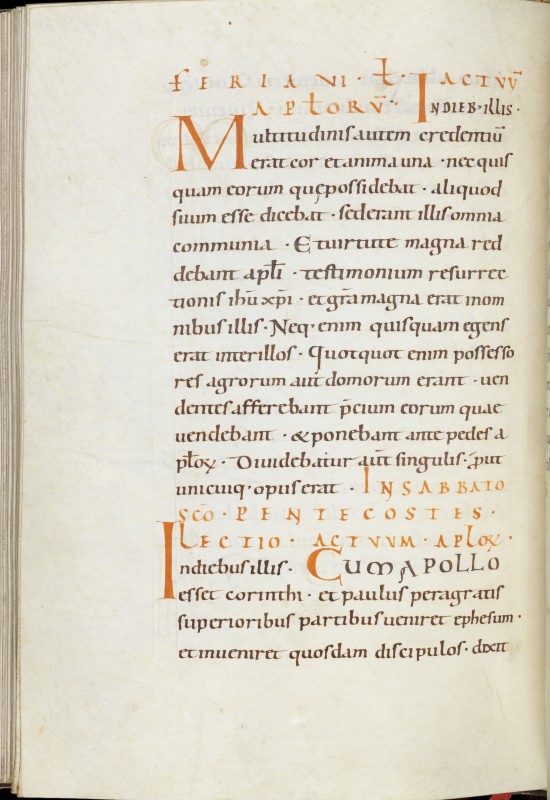 FERIA VI · Ł · ACTVV̄
APŁORV̄ · INDIEB · illis ·
Multitudinis autem credentiū
erat cor et anima una · nec quis
quam eorum quę possidebat · aliquod
suum esse dicebat · sed erant illis omnia
communia · Et uirtute magna red
debant apłi · testimonium resurrec
tionis ihū xp̄i · et grā magna erat in om
nibus illis · Neq· enim quisquam egens
erat inter illos · Quotquot enim possesso
res agrorum aut domorum erant · uen
dentes afferebant p̄cium eorum quae
uendebant · & ponebant ante pedes a
płoꝝ · Diuidebatur aūt singulis · ꝓut
unicuiq· opus erat · IN SABBATO
SC̄O · PENTECOSTES ·
LECTIO · ACTVVM · APŁOꝝ ·
Indiebus illis · CUM APOLLO
esset corinthi · et paulus peragratis
superioribus partibus ueniret ephesum ·
et inueniret quosdam discipulos · dixit